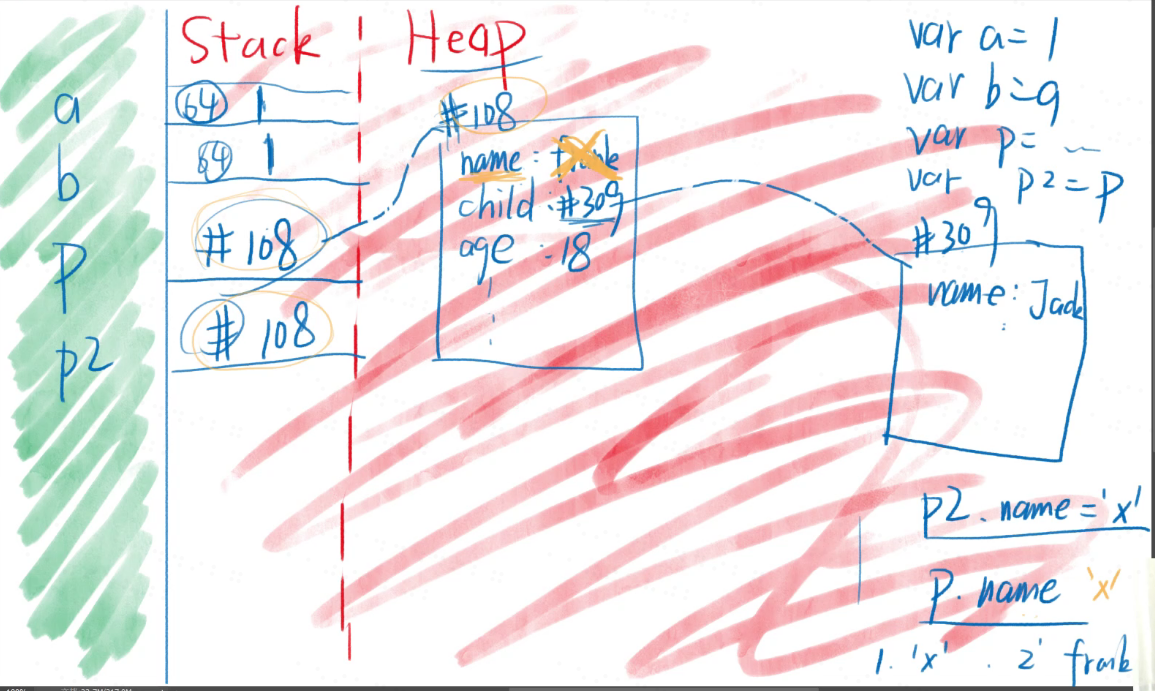 Stack Heap
a 64 1
b 64 1
p #108
p2 # 108
#108
name: frank
child: #309
age : 18
var a= 1
var b=a
var p= ...
var p2=p
#309
name: Jack
p2.name='x'
p.name 'x'
1. 'x' . 2' frank